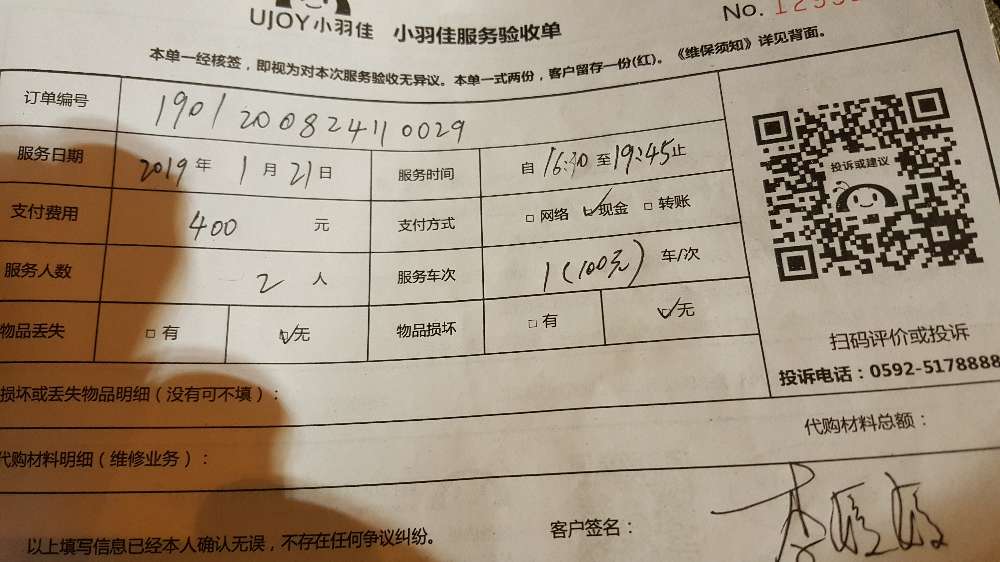 UJOY小羽佳 小羽佳服务验收单
No.
本单一经核签，即视为对本次服务验收无异议。本单一式两份，客户留存一份(红)。《维保须知》详见背面。
订单编号 1901200824110029
服务日期 2019年1月21日 服务时间 自16:30至19:45止
支付费用 400 元 支付方式 □网络 ☑现金 □转账
服务人数 2 人 服务车次 1(100元) 车/次
物品丢失 □有 ☑无 物品损坏 □有 ☑无
投诉或建议
扫码评价或投诉
投诉电话：0592-5178888
损坏或丢失物品明细（没有可不填）：
代购材料总额：
代购材料明细（维修业务）：
客户签名：
以上填写信息已经本人确认无误，不存在任何争议纠纷。